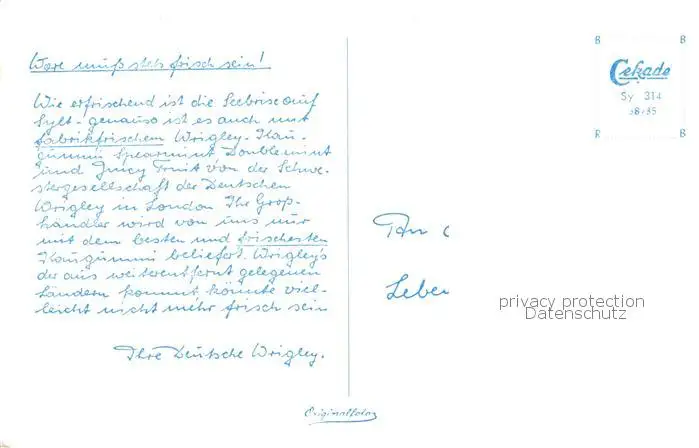 Ware muß stets frisch sein!
Wie erfrischend ist die Seebrise auf
Sylt - genauso ist es auch mit
fabrikfrischem Wrigley-Kau-
gummi Spearmint Doublemint
und Juicy Fruit von der Schwe-
stergesellschaft der Deutschen
Wrigley in London Ihr Groß-
händler wird von uns nur
mit dem besten und frischesten
Kaugummi beliefert. Wrigley's
der aus weiterentfernt gelegenen
Ländern kommt, könnte viel-
leicht nicht mehr frisch sein
Ihre Deutsche Wrigley.
B B
Cekade
Sy 314
R B
Leben
privacy protection
Datenschutz
Originalfoto